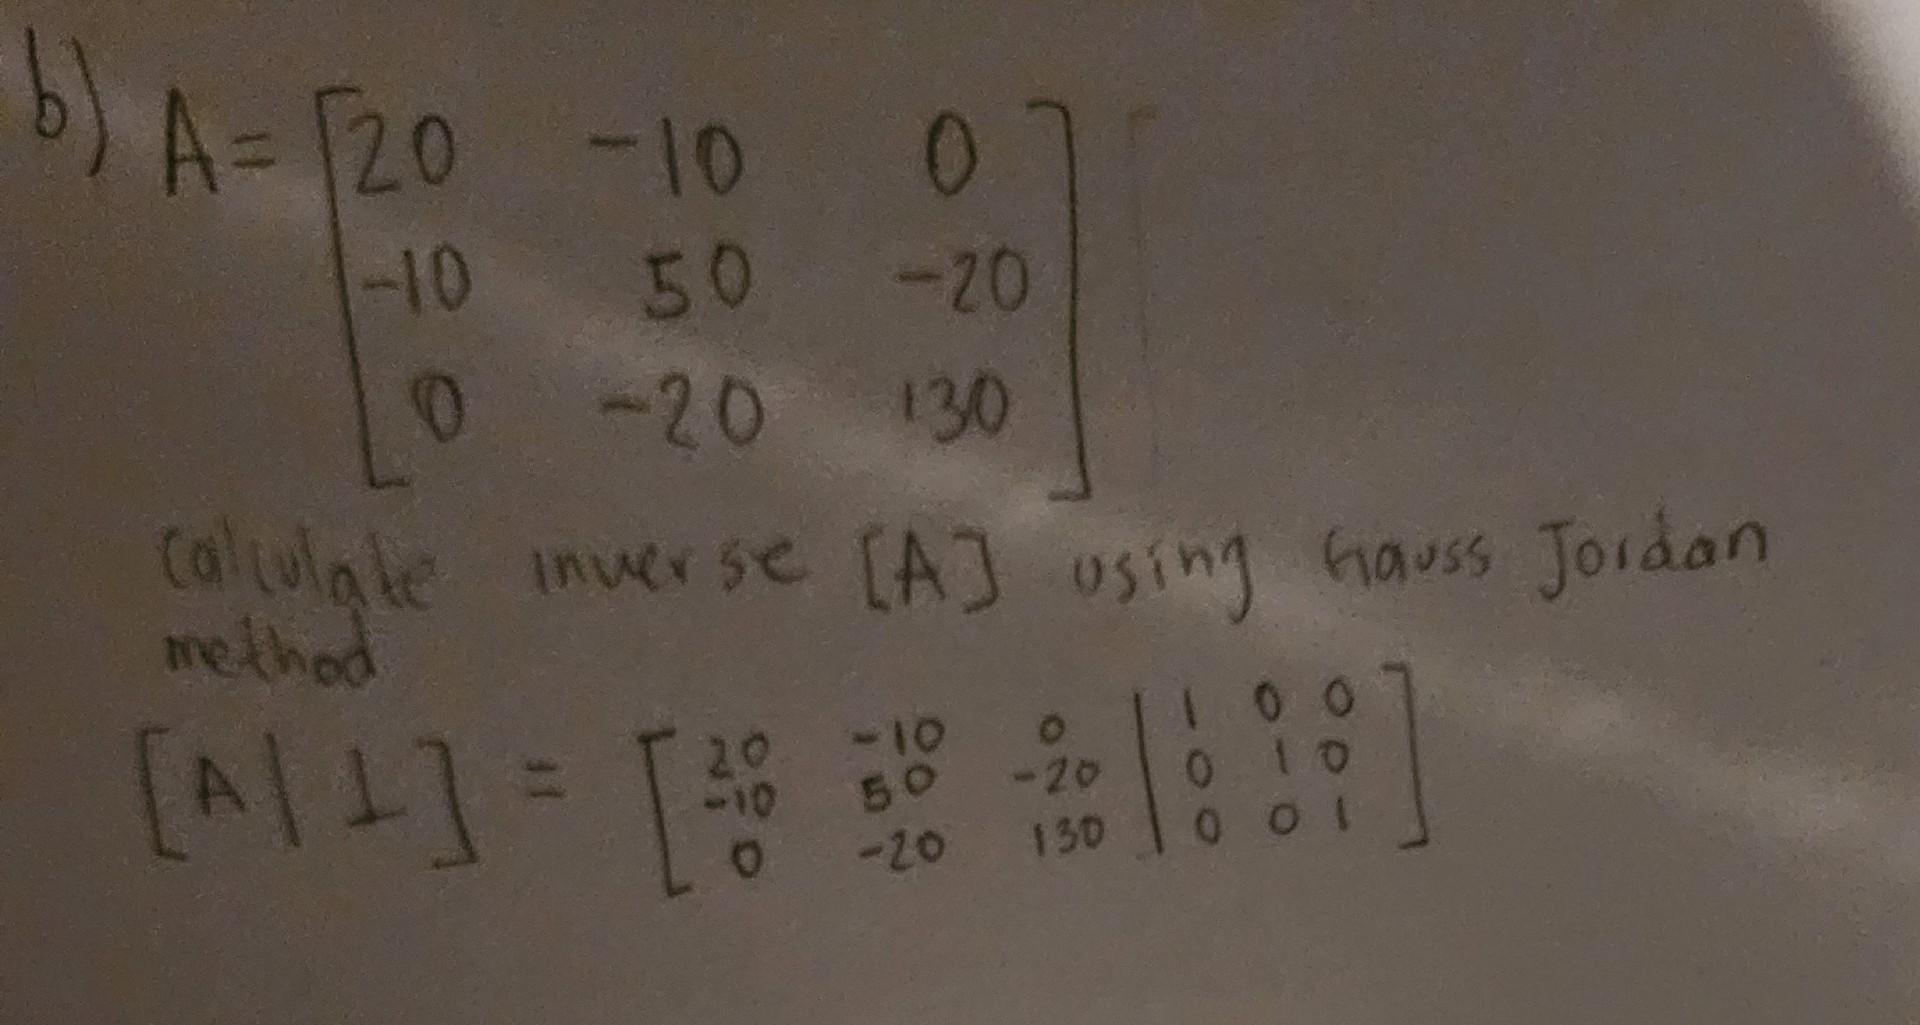 b) A = [20 -10 0
-10 50 -20
0 -20 130]
calculate inverse [A] using Gauss Jordan
method
[A | I] = [20 -10 0 | 1 0 0
-10 50 -20 | 0 1 0
0 -20 130 | 0 0 1]